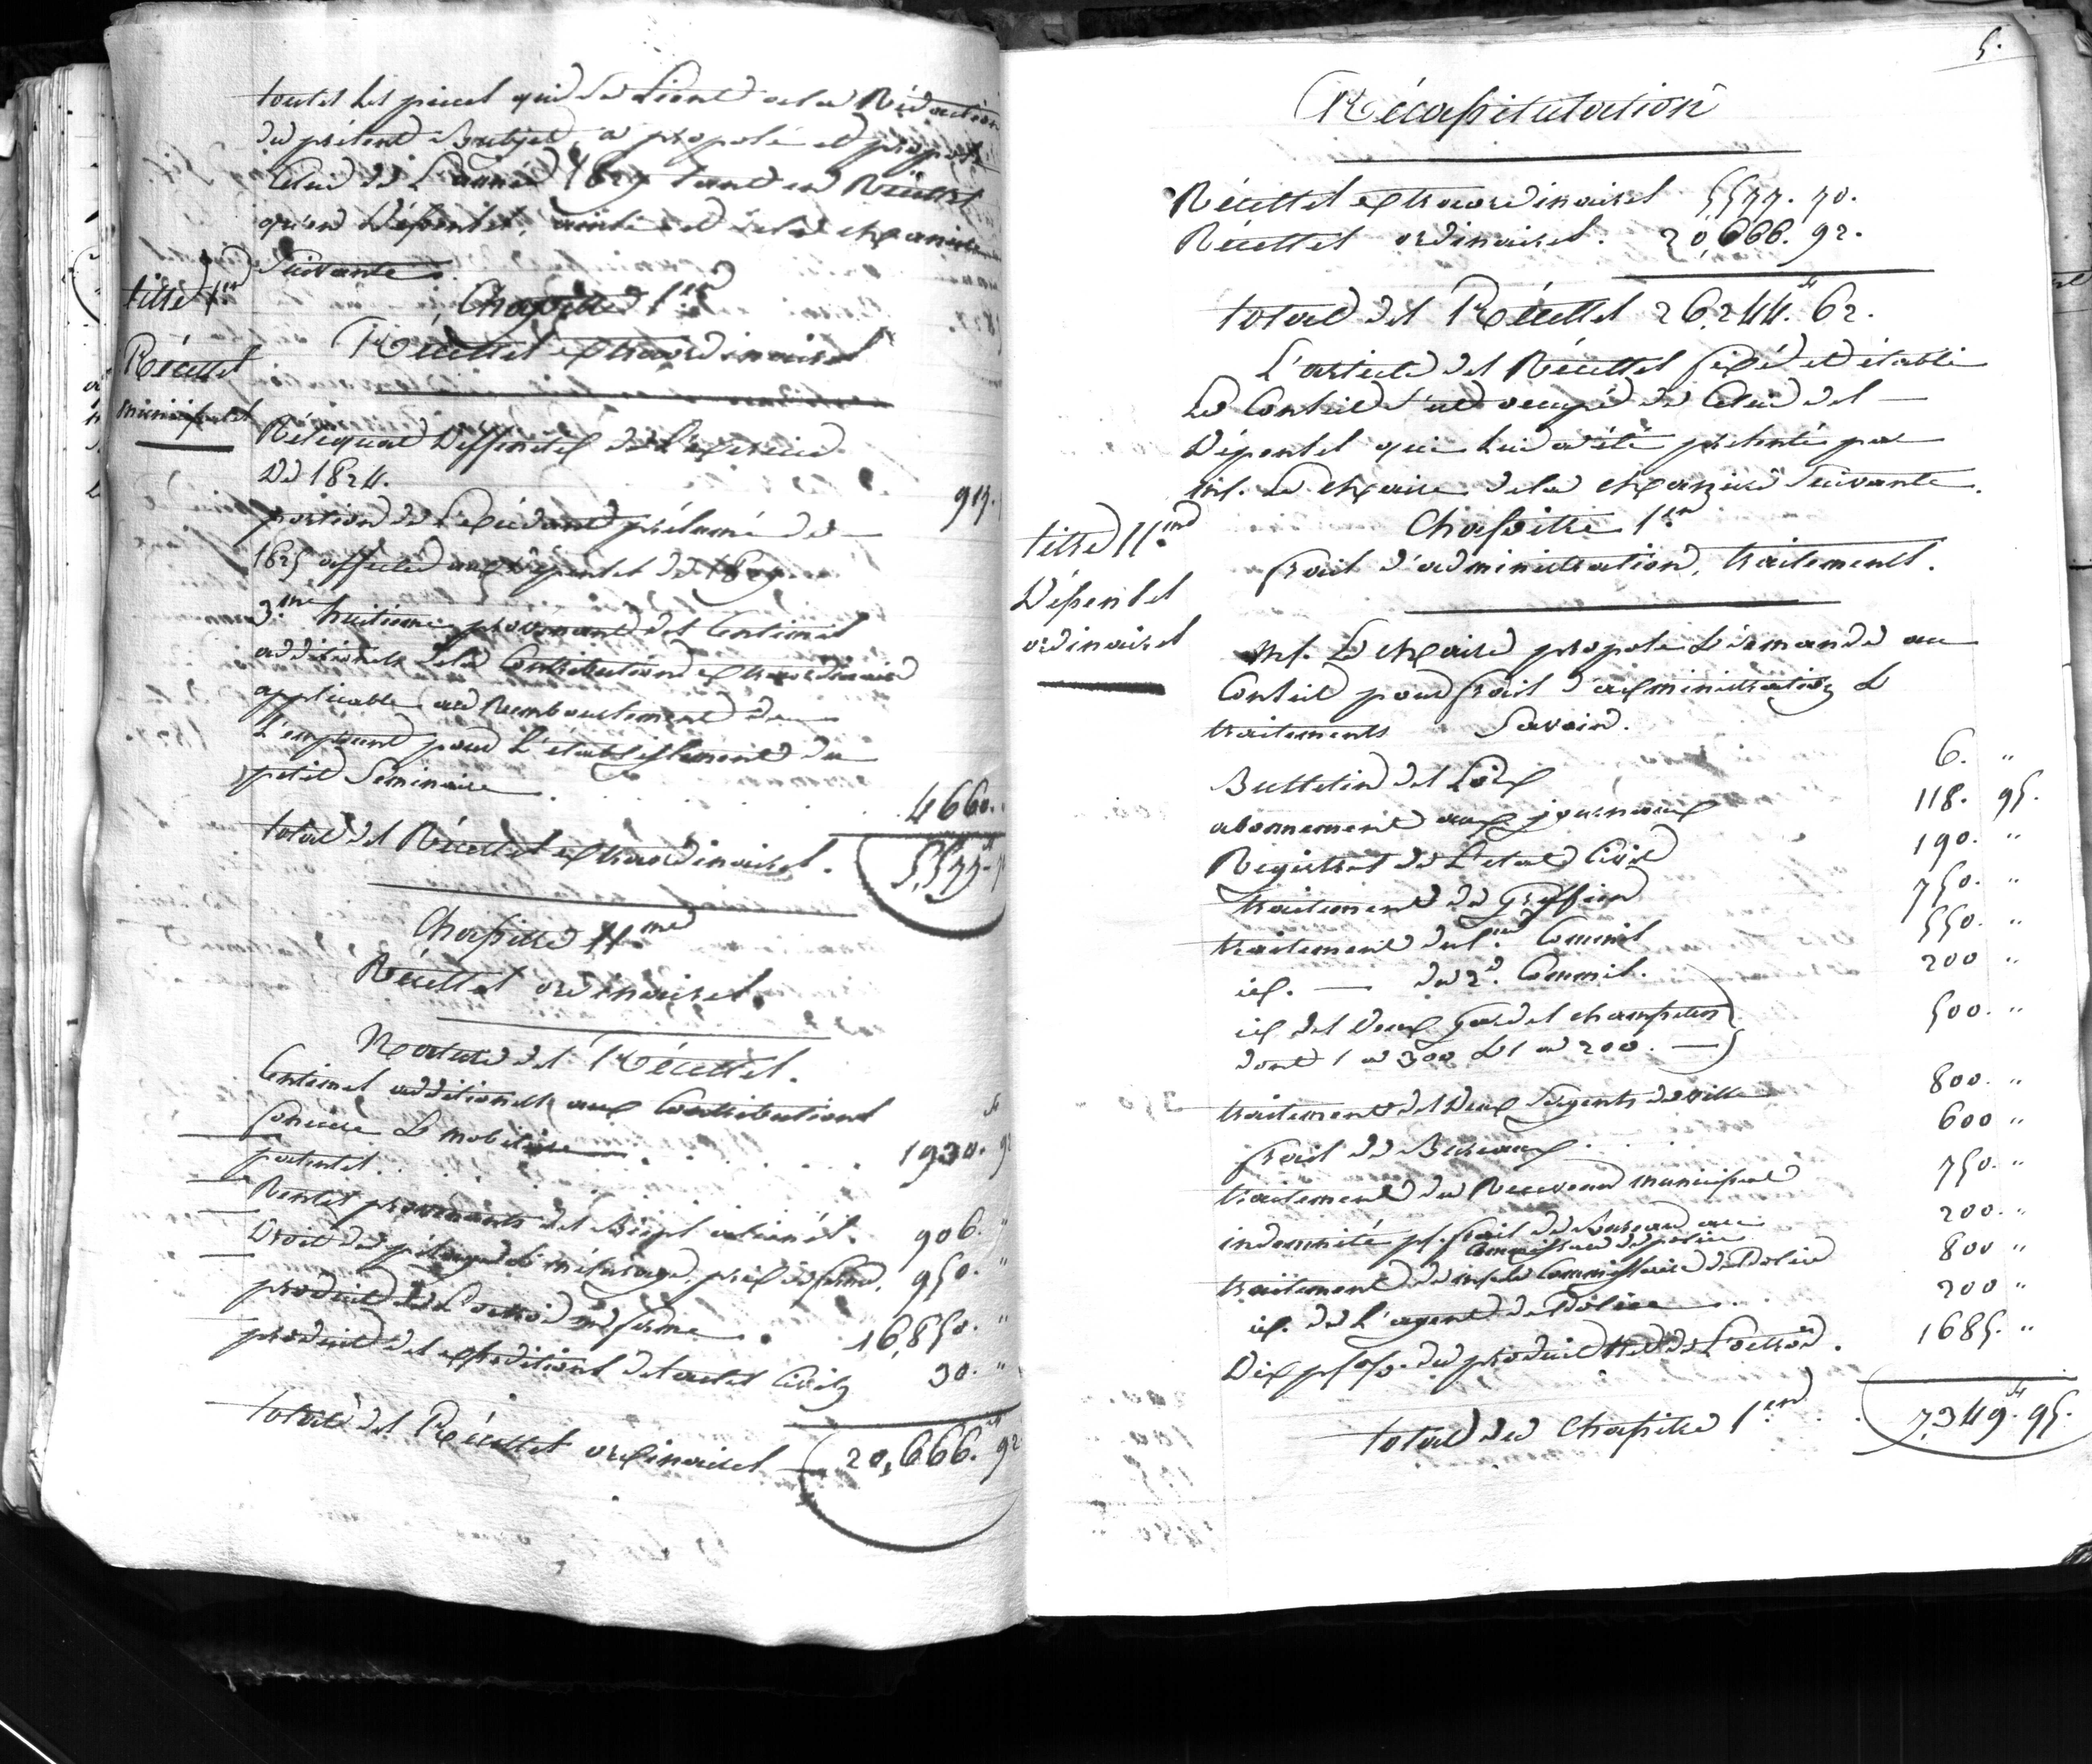 toutes les pièces qui se lient à la Rédaction
du présent Budjet, a proposé et propose
Celui de L'année 1827 tant en Recettes
qu'en Dépenses, ainsi et de la maniere
Suivante.
titre 1er
Recettes
municipales
Chapitre 1er
Récettes extraordinaires
Reliquat Deffinitif de L'exercice
De 1824.
portion de L'Excédant présumé de
1825 affecté aux Dépenses de 1827
917.
3.me huitieme provenant des Centimes
additionels de la Contribution extraordinaire
applicable au Remboursement de
L'emprunt pour L'établissement du
petit Séminaire . . . 4660.
total des Récettes extraordinaires. 5,577.
Chapitre II.me
Récettes ordinaires.
Nature des Récettes.
Centimes additionels aux Contributions
fonciere & mobiliaire . . . 1930. 92
patentes. .
Rentes provenants des Biens aliénés. 906. "
Droit de pésage & mésurage, prix de ferme. 950. "
produit de L'octroi en ferme . 16,850. "
produit des expéditions des actes Civils 30. "
total des Récettes ordinaires 20,666. 92
5.
Récapitulation
Récettes extraordinaires 5577. 70.
Récettes ordinaires. 20,666. 92.
total des Récettes 26,244.# 62.
L'article des Récettes fixé et établi
Le Conseil s'est occupé de Celui des
Dépenses qui Lui a été présenté par
Mr. Le Maire de la maniere Suivante.
titre II.me
Dépenses
ordinaires
Chapitre 1er
frais d'administration, traitements.
Mr. Le Maire propose & demande au
Conseil pour frais d'administration &
traitements Savoir.
Bulletin des Loix 6. "
abonnement aux journaux 118. 95.
Registres de L'etat Civil 190. "
traitement du Greffier 750. "
traitement du 1er Commis 550. "
id. — du 2.d Commis. 200 "
id des Deux Gardes champetres
dont 1 a 300 & 1 a 200. — 500. "
traitement des Deux Sergents de ville 800. "
frais de Bureaux . . . 600 "
traitement du Receveur municipal 750. "
indemnité pr. frais de Bureau au
Commissaire de police 200. "
traitement de Mr le Commissaire de Police 800 "
id. de L'agent de Police . 200 "
Dix pr %. du produit net de L'octroi. 1685. "
total du Chapitre 1er . . 7,349.# 95.